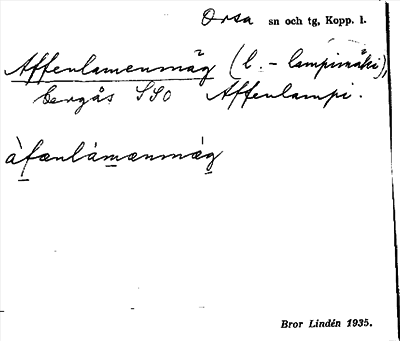 Orsa sn och tg, Kopp. l.
Affenlamenmäg (l. - lampimäki),
bergås SSO Affenlampi.
àfænlámænmæ̀g
Bror Lindén 1935.